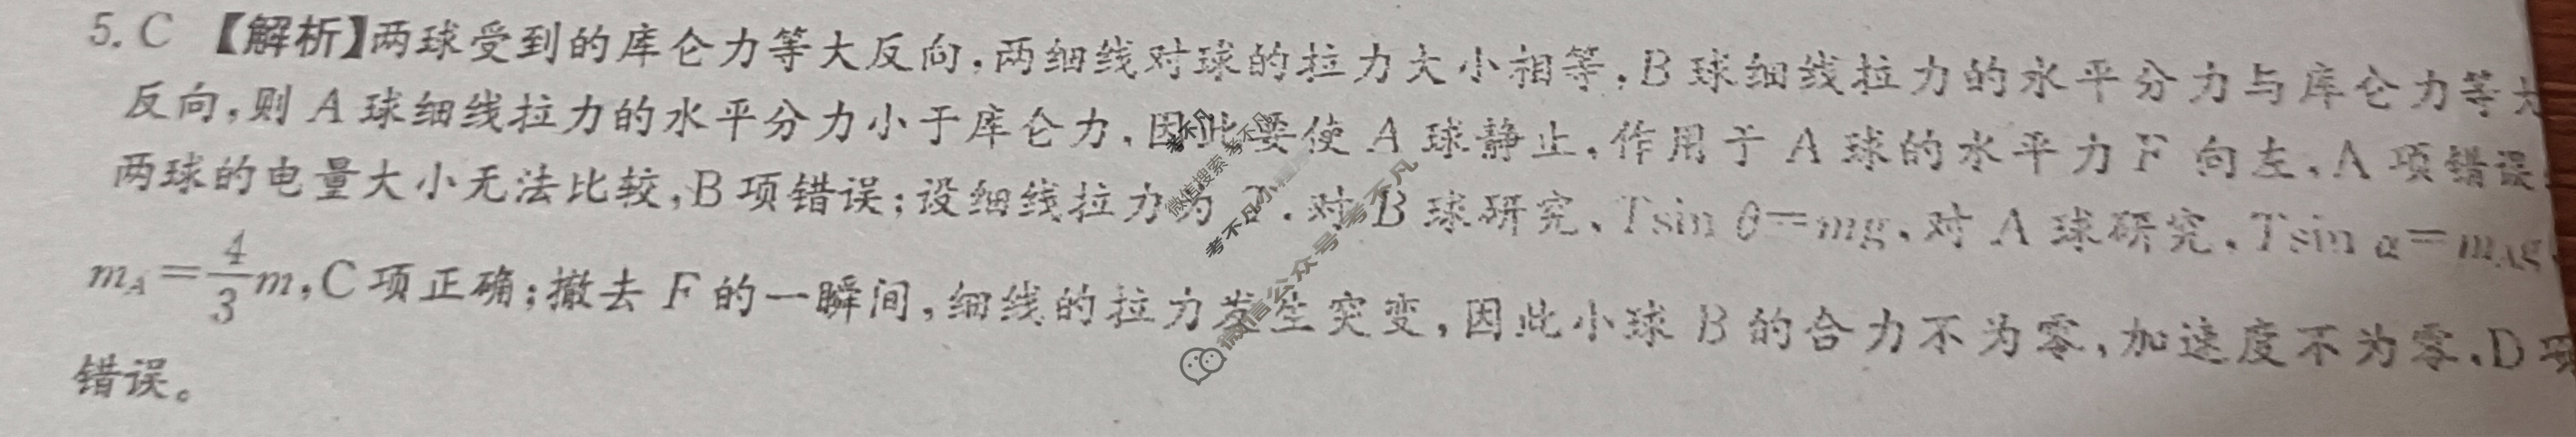 5. C 【解析】两球受到的库仑力等大反向,两细线对球的拉力大小相等,B球细线拉力的水平分力与库仑力等大
反向,则A球细线拉力的水平分力小于库仑力,因此要使A球静止,作用于A球的水平力F向左,A项错误
两球的电量大小无法比较,B项错误;设细线拉力为T,对B球研究,Tsin θ=mg,对A球研究,Tsin α=m_A g
m_A=\frac{4}{3}m,C项正确;撤去F的一瞬间,细线的拉力发生突变,因此小球B的合力不为零,加速度不为零,D项
错误。
考不凡 考不凡
微信搜索
考不凡小程序
微信公众号:考不凡